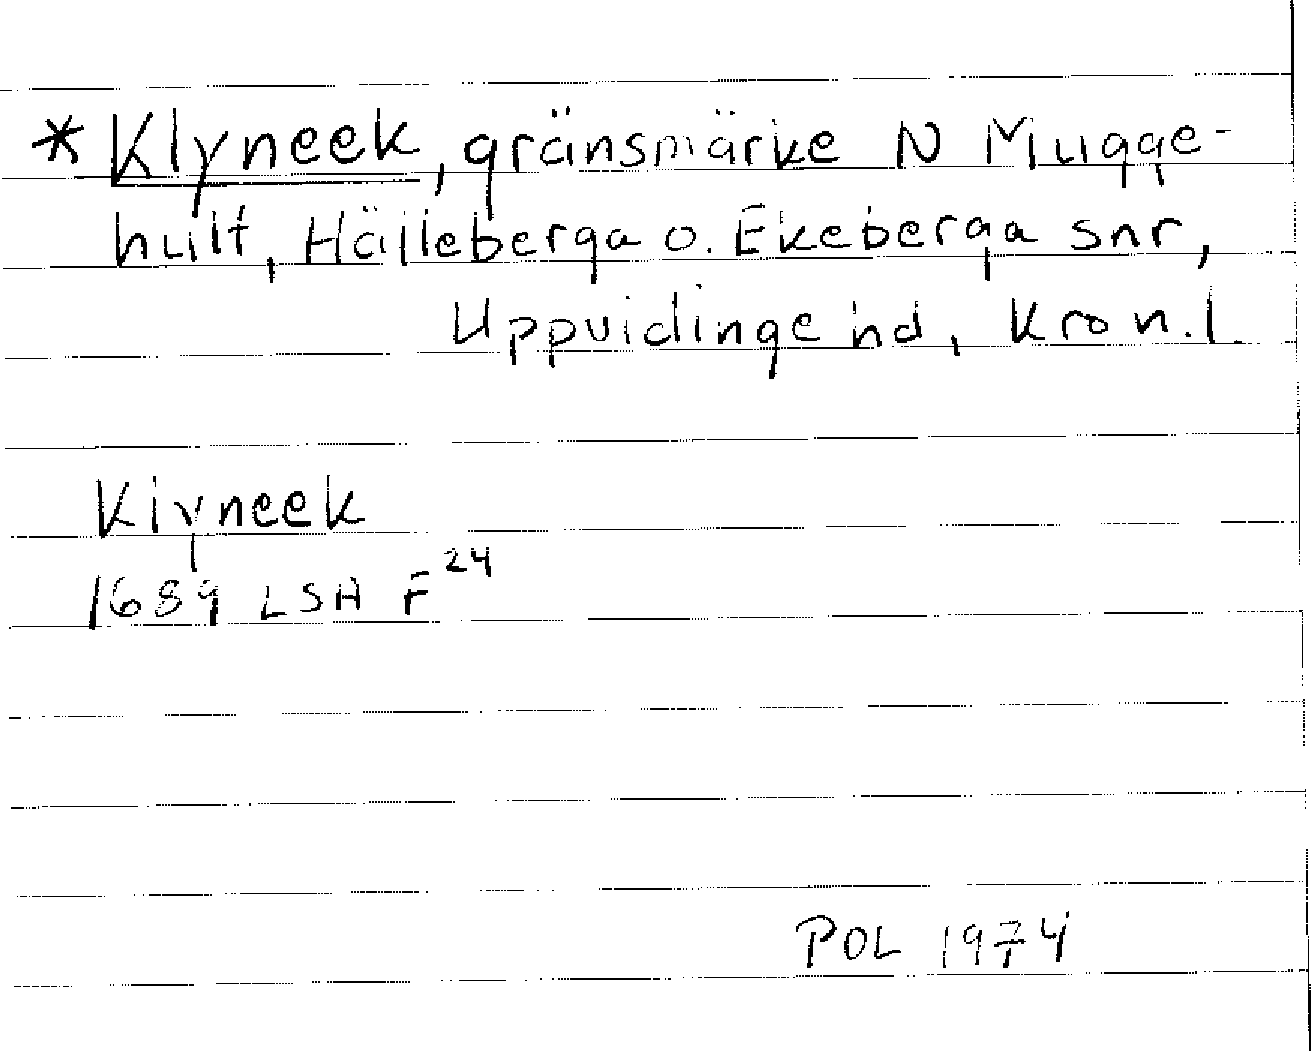 * Klyneek, gränsmärke N Mugge-
hult, Hälleberga o. Ekeberga snr,
Uppvidinge hd, Kron.l.
Klyneek
1689 LSA F²⁴
POL 1974